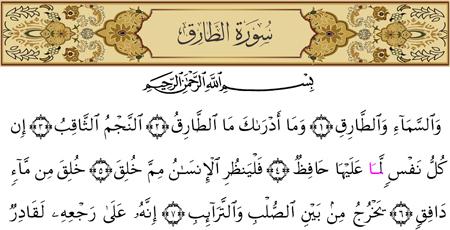 سُورَةُ الطَّارِقِ
بِسْمِ اللَّهِ الرَّحْمَٰنِ الرَّحِيمِ
وَالسَّمَاءِ وَالطَّارِقِ ﴿١﴾ وَمَا أَدْرَاكَ مَا الطَّارِقُ ﴿٢﴾ النَّجْمُ الثَّاقِبُ ﴿٣﴾ إِن
كُلُّ نَفْسٍ لَّمَّا عَلَيْهَا حَافِظٌ ﴿٤﴾ فَلْيَنظُرِ الْإِنسَانُ مِمَّ خُلِقَ ﴿٥﴾ خُلِقَ مِن مَّاءٍ
دَافِقٍ ﴿٦﴾ يَخْرُجُ مِن بَيْنِ الصُّلْبِ وَالتَّرَائِبِ ﴿٧﴾ إِنَّهُ عَلَىٰ رَجْعِهِ لَقَادِرٌ